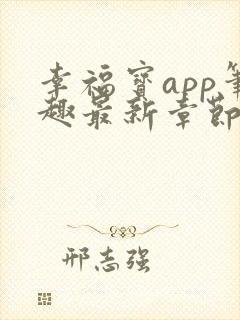 幸福宝app笔
趣最新章节
邢志强